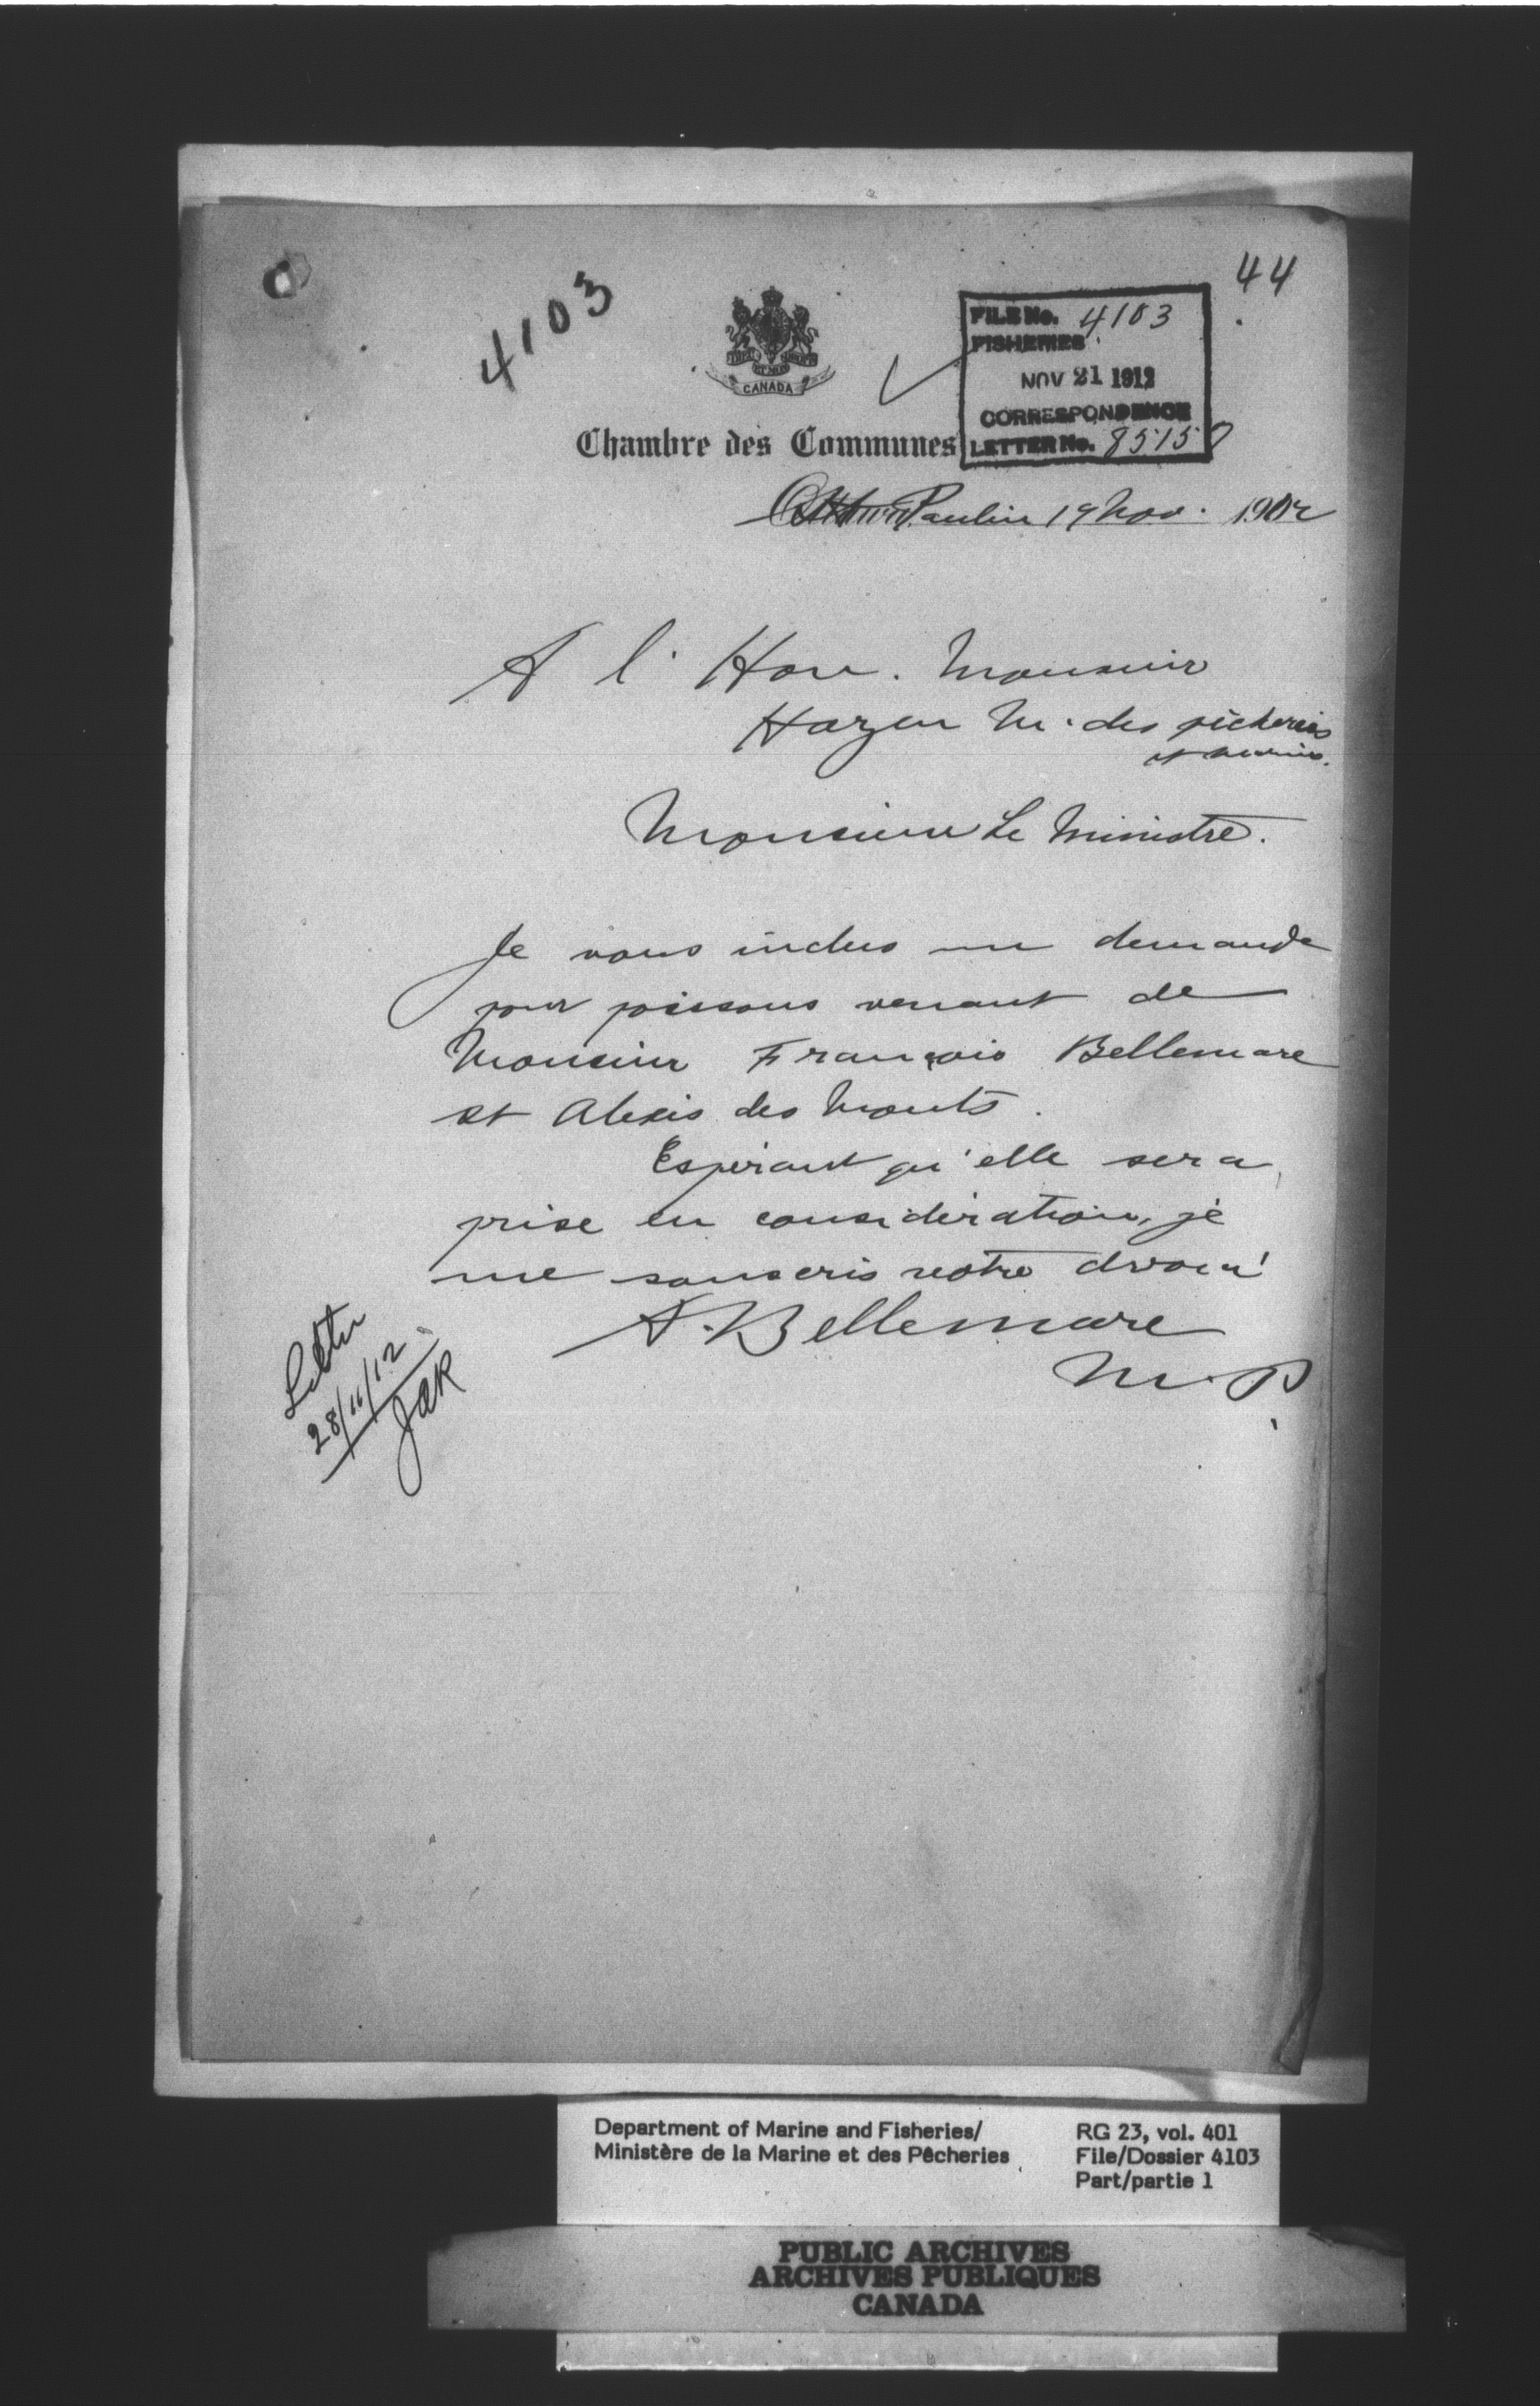 44
4103
CANADA
FILE No. 4103
FISHERIES
NOV 21 1912
CORRESPONDENCE
LETTER No. 85150
Chambre des Communes
Paulin 19 Nov. 1912
A l' Hon. Monsieur
Hazen M. des pêcheries
et marine.
Monsieur Le Ministre.
Je vous inclus un demande
pour poissons venant de
Monsieur François Bellemare
St Alexis des Monts.
Espérant qu'elle sera
prise en considération, je
me souscris votre dévoué
A. Bellemare
M.P.
Letter
28/11/12
Department of Marine and Fisheries/
Ministère de la Marine et des Pêcheries
RG 23, vol. 401
File/Dossier 4103
Part/partie 1
PUBLIC ARCHIVES
ARCHIVES PUBLIQUES
CANADA